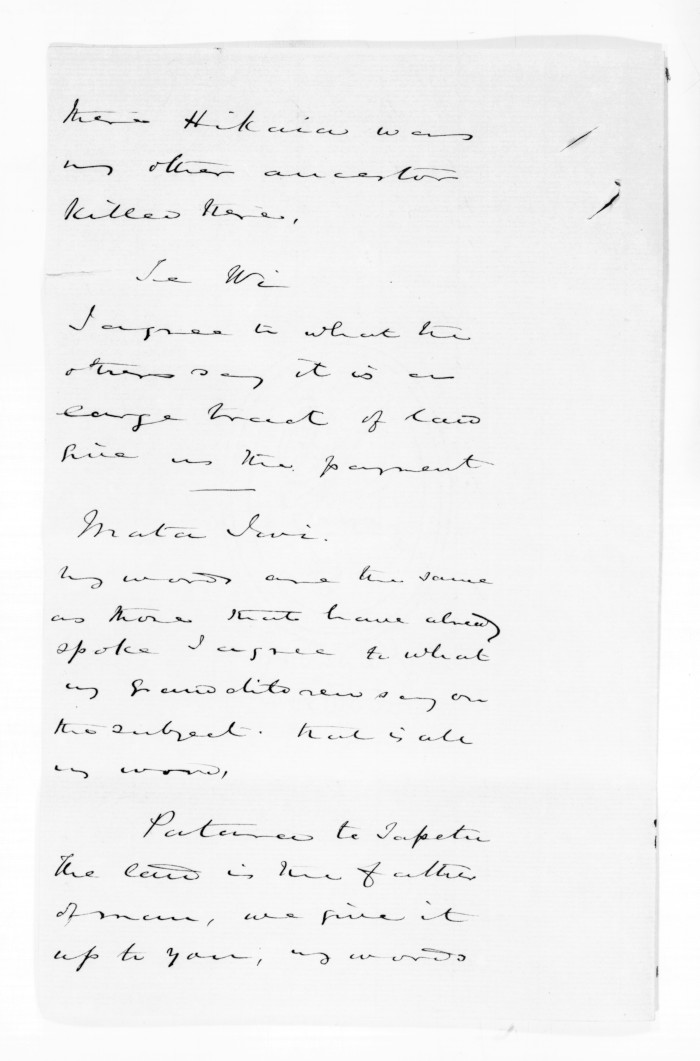 there Hikaia was
my other ancestor
killed there,
Te Wi
I agree to what the
others say it is a
large tract of land
Give us the payment
Mata Iwi.
My words are the same
as those that have already
spoke I agree to what
my grandchildren say on
the subject. that is all
my word,
te Tapetu
The land is the father
of man, we give it
up to you, my words